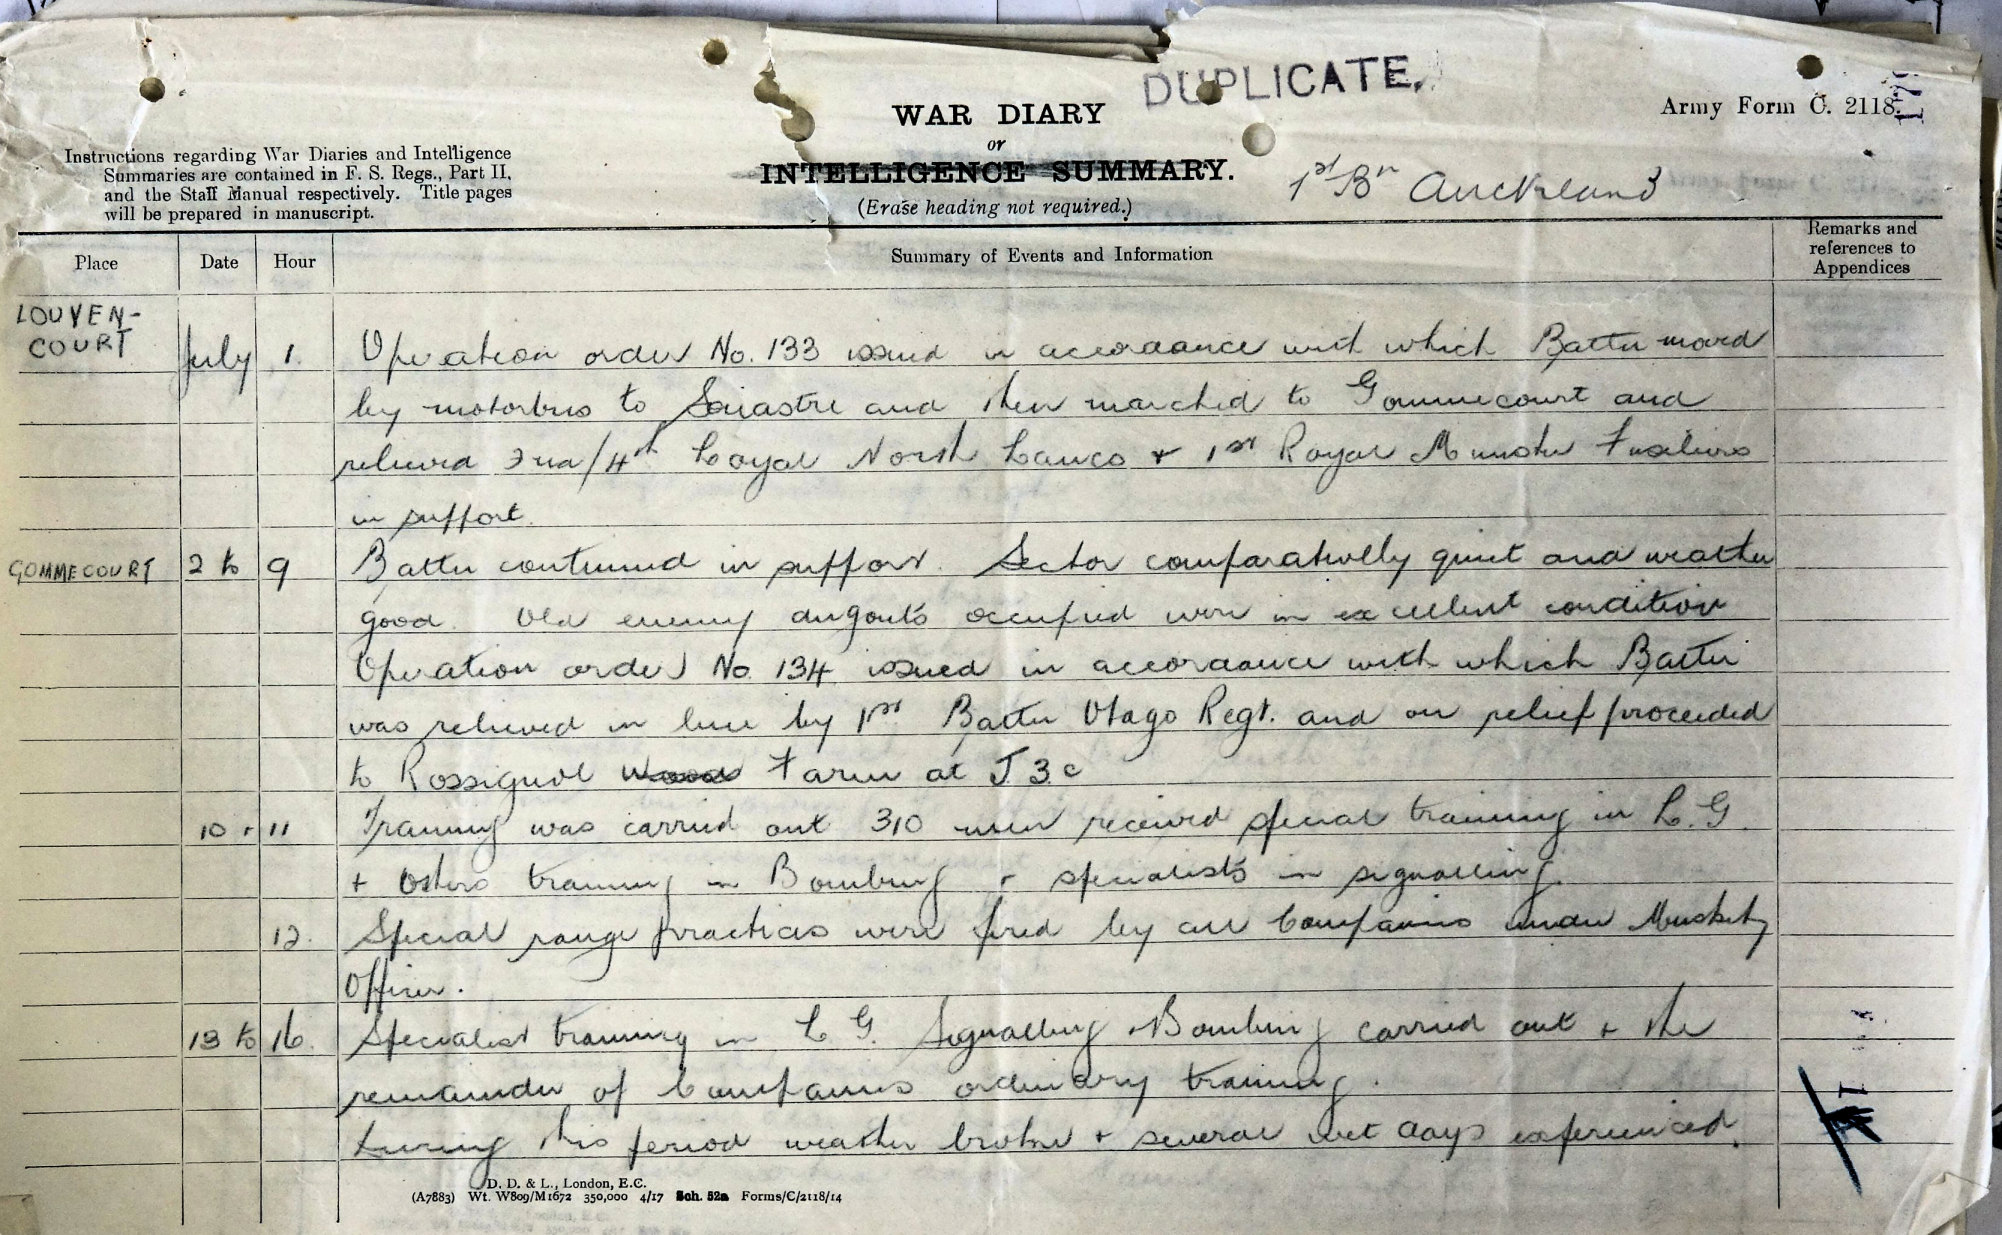 DUPLICATE.
Army Form C. 2118.
WAR DIARY
or
INTELLIGENCE SUMMARY.
(Erase heading not required.)
1st Bn Auckland
Instructions regarding War Diaries and Intelligence
Summaries are contained in F. S. Regs., Part II,
and the Staff Manual respectively. Title pages
will be prepared in manuscript.
Place
Date
Hour
Summary of Events and Information
Remarks and
references to
Appendices
LOUVEN-
COURT
July 1. Operation order No. 133 issued in accordance with which Battn moved
by motorbus to Souastre and then marched to Gommecourt and
relieved 2nd/4th Loyal North Lancs + 1st Royal Munster Fusiliers
in support.
GOMMECOURT 2 to 9 Battn continued in support. Sector comparatively quiet and weather
good. Old enemy dugouts occupied were in excellent condition
Operation order No. 134 issued in accordance with which Battn
was relieved in line by 1st Battn Otago Regt. and on relief proceeded
to Rossignol Wood Farm at J.3.c
10 + 11 Training was carried out 310 men received special training in L.G.
+ others training in Bombing + specialists in signalling.
12. Special range practices were fired by all Companies under Musketry
Officer.
13 to 16. Specialist training in L G. Signalling + Bombing carried out + the
remainder of Companies ordinary training.
During this period weather broke + several wet days experienced.
D. D. & L., London, E.C.
(A7883) Wt. W809/M1672 350,000 4/17 Sch. 52a Forms/C/2118/14